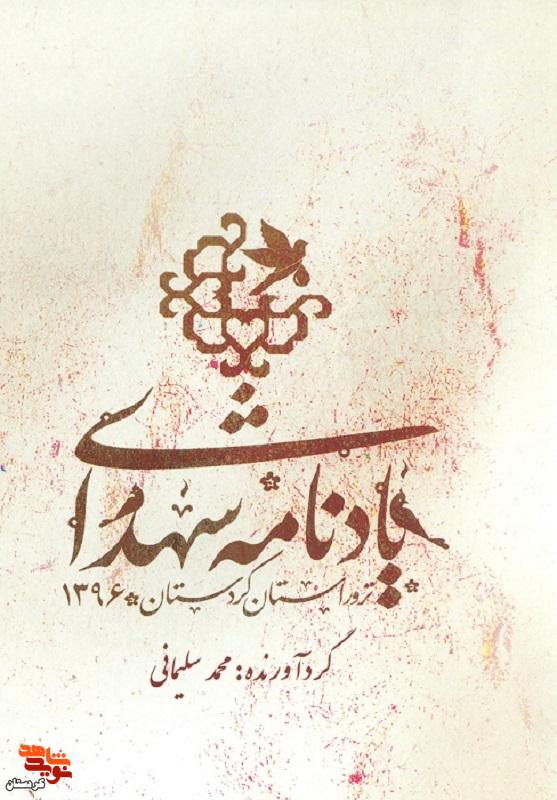 یادنامه شهدای
ترور استان کردستان ۱۳۹۶
گردآورنده: محمد سلیمانی
نوید شاهد
کردستان